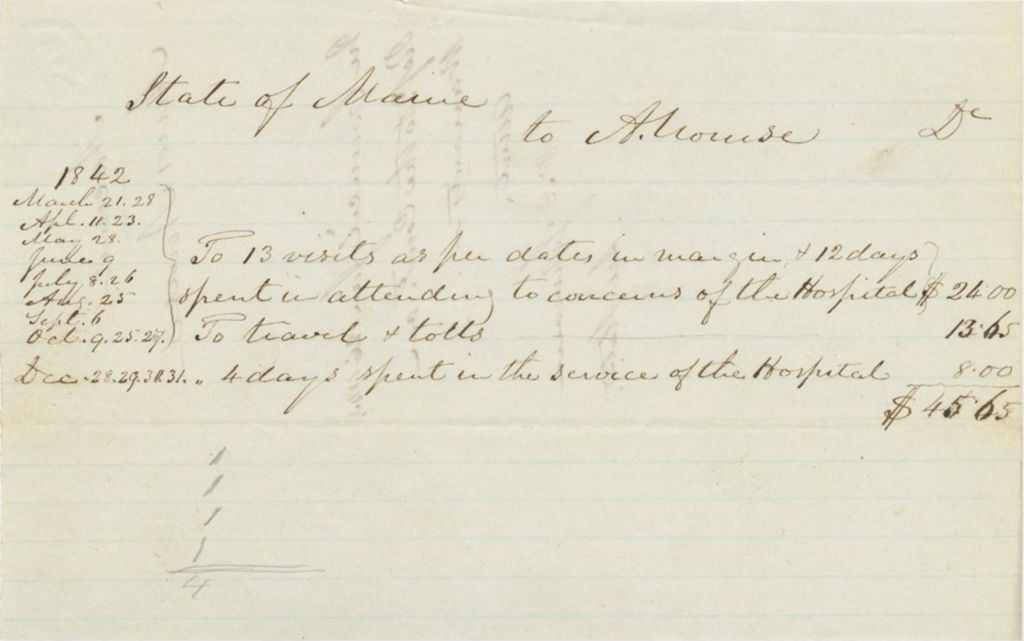 State of Maine
to A. Nourse Dr
1842
March 21.28
Apl. 11.23.
May 28.
June 9
July 8.26
Aug. 25
Sept. 6
Oct. 9.25.27.
To 13 visits as per dates in margin, & 12 days
spent in attending to concerns of the Hospital $ 24.00
To travel & tolls 13.65
Dec. 28.29.30.31. " 4 days spent in the service of the Hospital 8.00
$ 45.65
1
1
1
1
4